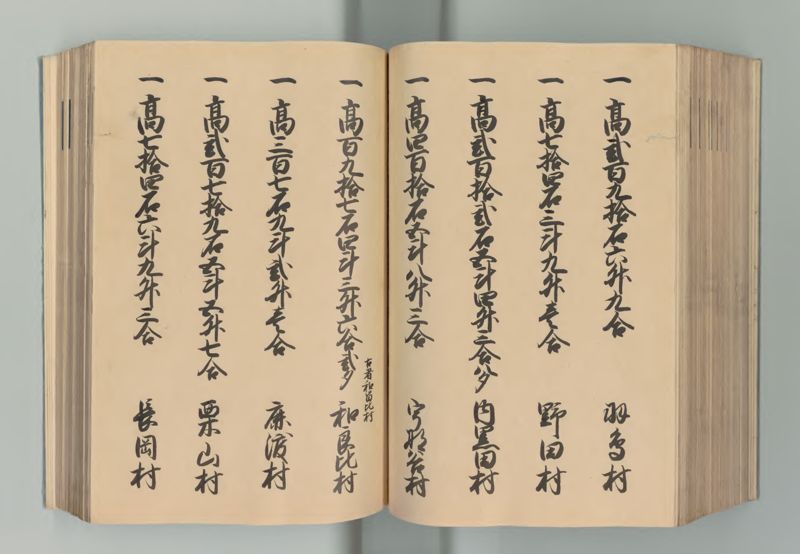 一 高弐百九拾石六升九合 羽鳥村
一 高七拾四石三斗九升壱合 野田村
一 高弐百拾弐石五斗四升三合八夕 内黒田村
一 高四百拾石五斗八升三合 村
一 高百九拾七石四斗三升六合弐夕 和良比村
古者和田比村
一 高三百七石九斗弐升壱合 麻渡村
一 高弐百七拾九石五斗五升七合 栗山村
一 高七拾四石六斗九升三合 長岡村